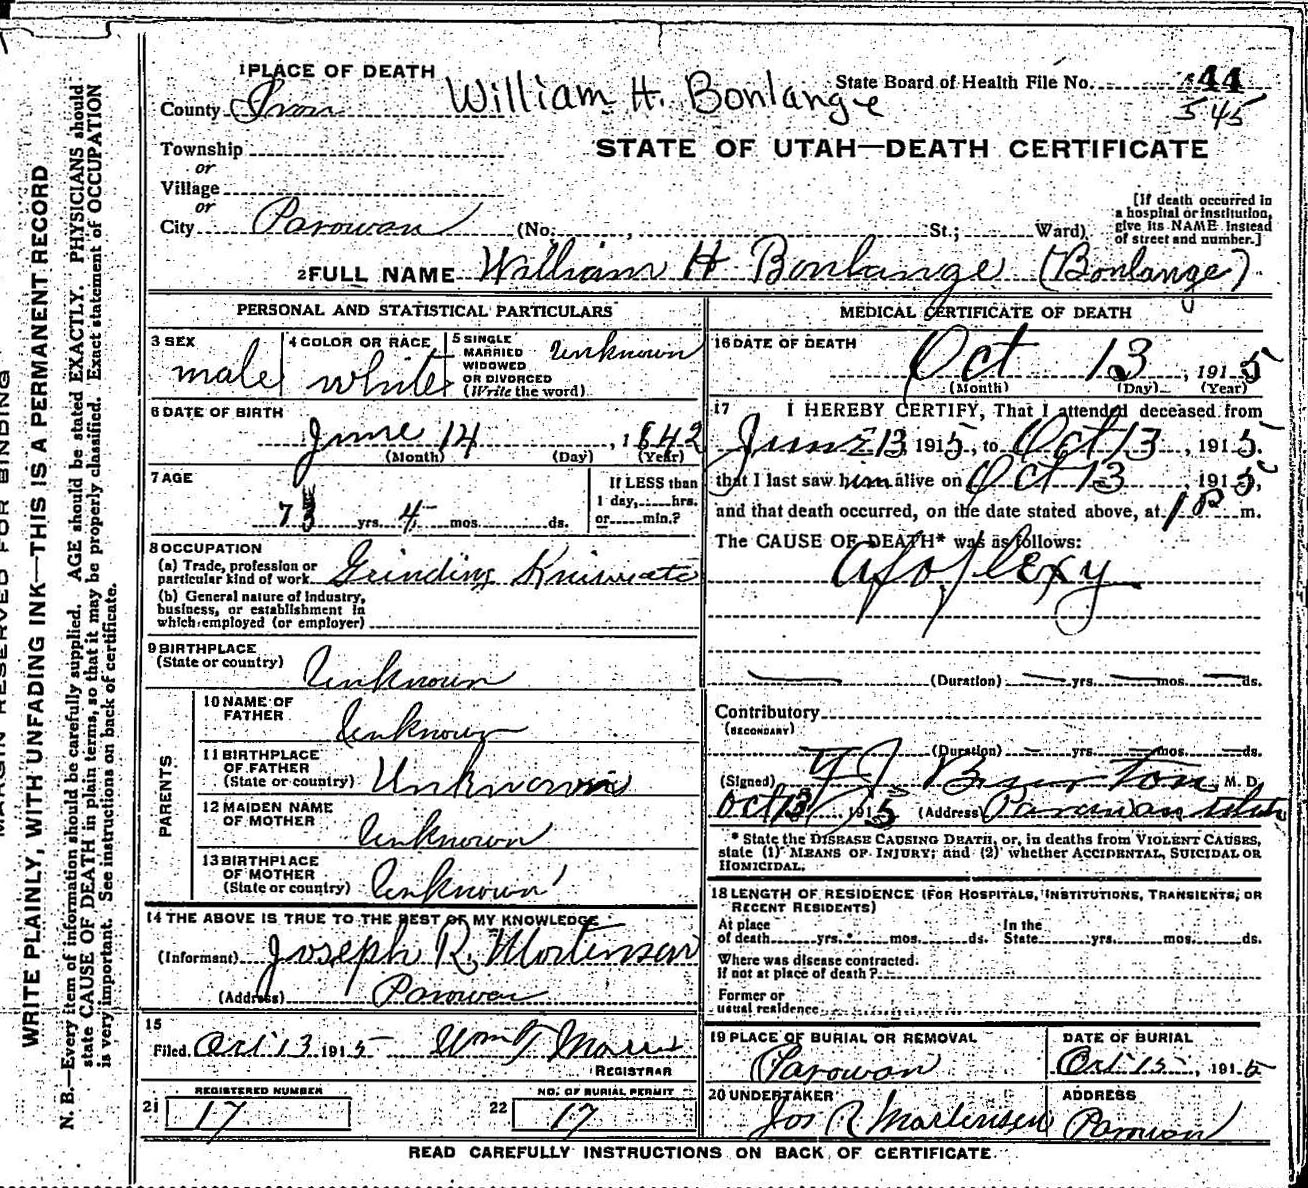 MARGIN RESERVED FOR BINDING
WRITE PLAINLY, WITH UNFADING INK—THIS IS A PERMANENT RECORD
N. B.—Every item of information should be carefully supplied. AGE should be stated EXACTLY. PHYSICIANS should
state CAUSE OF DEATH in plain terms, so that it may be properly classified. Exact statement of OCCUPATION
is very important. See instructions on back of certificate.
1 PLACE OF DEATH
William H. Bonlange
State Board of Health File No. 44
545
County Iron
STATE OF UTAH—DEATH CERTIFICATE
Township
or
Village
or
City Parowan (No. , St.; Ward)
[If death occurred in
a hospital or institution,
give its NAME instead
of street and number.]
2 FULL NAME William H Bonlange (Bonlange)
PERSONAL AND STATISTICAL PARTICULARS
3 SEX
male
4 COLOR OR RACE
white
5 SINGLE
MARRIED
WIDOWED
OR DIVORCED
(Write the word)
Unknown
6 DATE OF BIRTH
June 14, 1842
(Month) (Day) (Year)
7 AGE
73 yrs. 4 mos. ds.
If LESS than
1 day, hrs.
or min.?
8 OCCUPATION
(a) Trade, profession or
particular kind of work Grinding
(b) General nature of industry,
business, or establishment in
which employed (or employer)
9 BIRTHPLACE
(State or country) Unknown
PARENTS
10 NAME OF
FATHER Unknown
11 BIRTHPLACE
OF FATHER
(State or country) Unknown
12 MAIDEN NAME
OF MOTHER Unknown
13 BIRTHPLACE
OF MOTHER
(State or country) Unknown
14 THE ABOVE IS TRUE TO THE BEST OF MY KNOWLEDGE
(Informant) Joseph R. Mortensen
(Address) Parowan
15
Filed Oct 13 1915 Wm
REGISTRAR
REGISTERED NUMBER
21 17
NO. OF BURIAL PERMIT
22 17
MEDICAL CERTIFICATE OF DEATH
16 DATE OF DEATH
Oct 13, 1915
(Month) (Day) (Year)
17 I HEREBY CERTIFY, That I attended deceased from
June 13, 1915, to Oct 13, 1915.
that I last saw him alive on Oct 13, 1915,
and that death occurred, on the date stated above, at 1 P m.
The CAUSE OF DEATH* was as follows:
Apoplexy
(Duration) yrs. mos. ds.
Contributory
(SECONDARY)
(Duration) yrs. mos. ds.
(Signed) Burton M. D.
Oct 13, 1915 (Address) Parowan Utah
* State the DISEASE CAUSING DEATH, or, in deaths from VIOLENT CAUSES,
state (1) MEANS OF INJURY; and (2) whether ACCIDENTAL, SUICIDAL OR
HOMICIDAL.
18 LENGTH OF RESIDENCE (FOR HOSPITALS, INSTITUTIONS, TRANSIENTS, OR
RECENT RESIDENTS)
At place
of death yrs. mos. ds.
In the
State yrs. mos. ds.
Where was disease contracted.
If not at place of death?
Former or
usual residence
19 PLACE OF BURIAL OR REMOVAL
Parowan
DATE OF BURIAL
Oct 15, 1915
20 UNDERTAKER
Jos R Mortensen
ADDRESS
Parowan
READ CAREFULLY INSTRUCTIONS ON BACK OF CERTIFICATE.